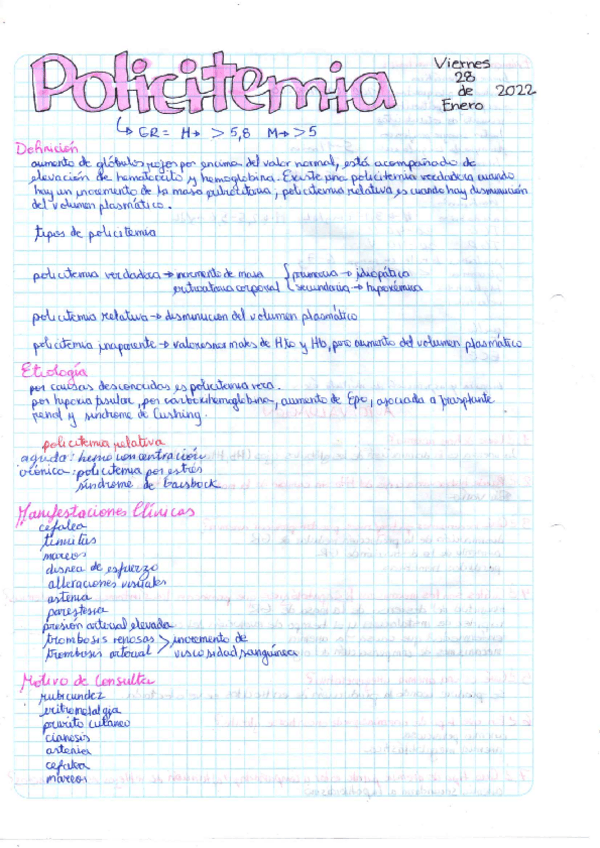 Policitemia
Viernes
28
de
Enero
2022
↳ ER = H→ > 5,8 M→ > 5
Definición
aumento de glóbulos rojos por encima del valor normal, está acompañado de
elevación de hematocrito y hemoglobina. Existe una policitemia verdadera cuando
hay un incremento de la masa eritrocitaria, policitemia relativa es cuando hay disminución
del volumen plasmático.
tipos de policitemia
policitemia verdadera → incremento de masa { primaria → idiopática
eritrocitaria corporal secundaria → hipoxémica
policitemia relativa → desminucion del volumen plasmático
policitemia inaparente → valores normales de Hto y Hb, pero aumento del volumen plasmático
Etiología
por causas desconocidas es policitemia vera.
por hipoxia tisular, por carboxihemoglobina, aumento de Epo, asociada a trasplante
renal y sindrome de Cushing.
policitemia relativa
aguda: hemoconcentración
crónica: policitemia por estrés
síndrome de Gaisbock
Manifestaciones Clínicas
cefalea
tinnitus
mareos
disnea de esfuerzo
alteraciones visuales
astenia
parestesia
presión arterial elevada
trombosis venosas > incremento de
trombosis arterial viscosidad sanguínea
Motivo de Consulta
rubicundez
eritromelalgia
prurito cutaneo
cianosis
astenia
cefalea
mareos